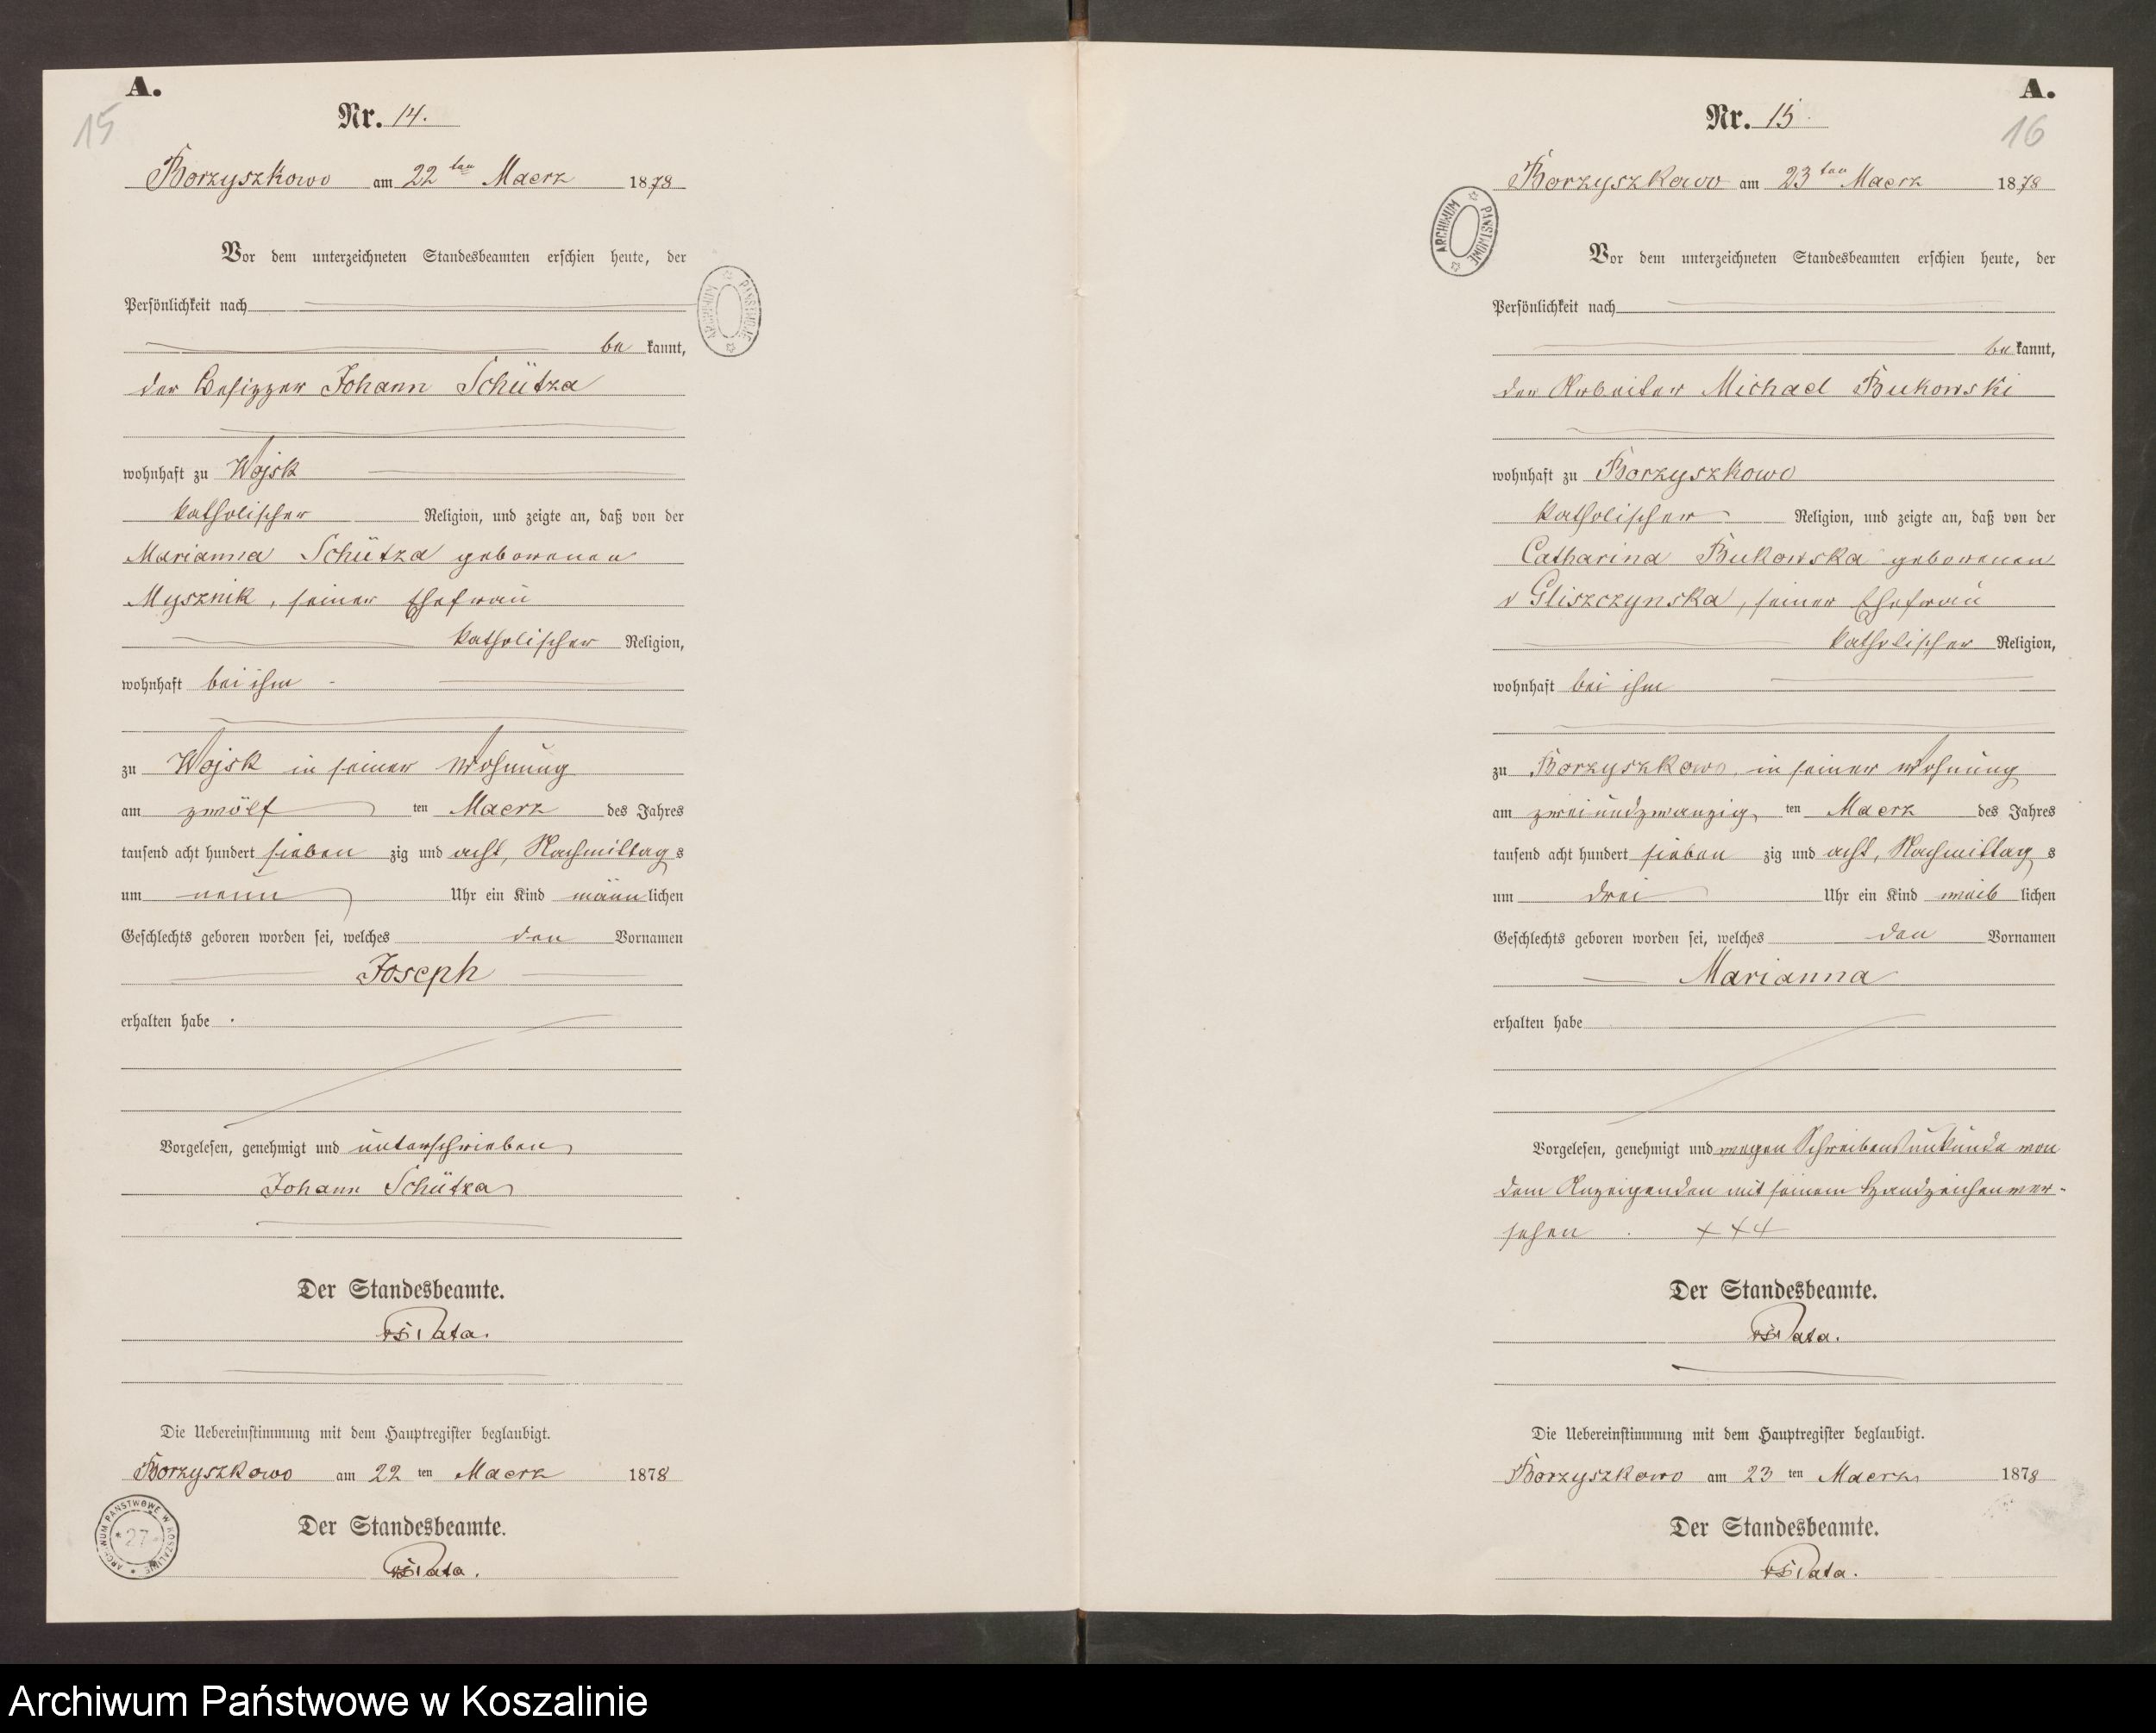 A.
15
Nr. 14.
Borzyszkowo am 22 ten Maerz 1878
Vor dem unterzeichneten Standesbeamten erschien heute, der
Persönlichkeit nach
be kannt,
der Besizzer Johann Schütza
wohnhaft zu Wojsk
katholischer Religion, und zeigte an, daß von der
Marianna Schütza geborenen
Mysznik, seiner Ehefrau
katholischer Religion,
wohnhaft bei ihm
zu Wojsk in seiner Wohnung
am zwölf ten Maerz des Jahres
tausend acht hundert sieben zig und acht, Nachmittag s
um neun Uhr ein Kind männ lichen
Geschlechts geboren worden sei, welches den Vornamen
Joseph
erhalten habe .
Vorgelesen, genehmigt und unterschrieben
Johann Schütza
Der Standesbeamte.
Die Uebereinstimmung mit dem Hauptregister beglaubigt.
Borzyszkowo am 22 ten Maerz 1878
Der Standesbeamte.
ARCHIWUM PAŃSTWOWE
ARCHIWUM PAŃSTWOWE W KOSZALINIE
27
A.
16
Nr. 15.
Borzyszkowo am 23 ten Maerz 1878
Vor dem unterzeichneten Standesbeamten erschien heute, der
Persönlichkeit nach
be kannt,
der Arbeiter Michael Bukowski
wohnhaft zu Borzyszkowo
katholischer Religion, und zeigte an, daß von der
Catharina Bukowska geborenen
v Gliszczynska, seiner Ehefrau
katholischer Religion,
wohnhaft bei ihm
zu Borzyszkowo, in seiner Wohnung
am zweiundzwanzig ten Maerz des Jahres
tausend acht hundert sieben zig und acht, Nachmittag s
um drei Uhr ein Kind weib lichen
Geschlechts geboren worden sei, welches den Vornamen
Marianna
erhalten habe
Vorgelesen, genehmigt und wegen Schreibensunkunde von
dem Anzeigenden mit seinem Handzeichen ver-
sehen . +++
Der Standesbeamte.
Die Uebereinstimmung mit dem Hauptregister beglaubigt.
Borzyszkowo am 23 ten Maerz 1878
Der Standesbeamte.
ARCHIWUM PAŃSTWOWE
Archiwum Państwowe w Koszalinie